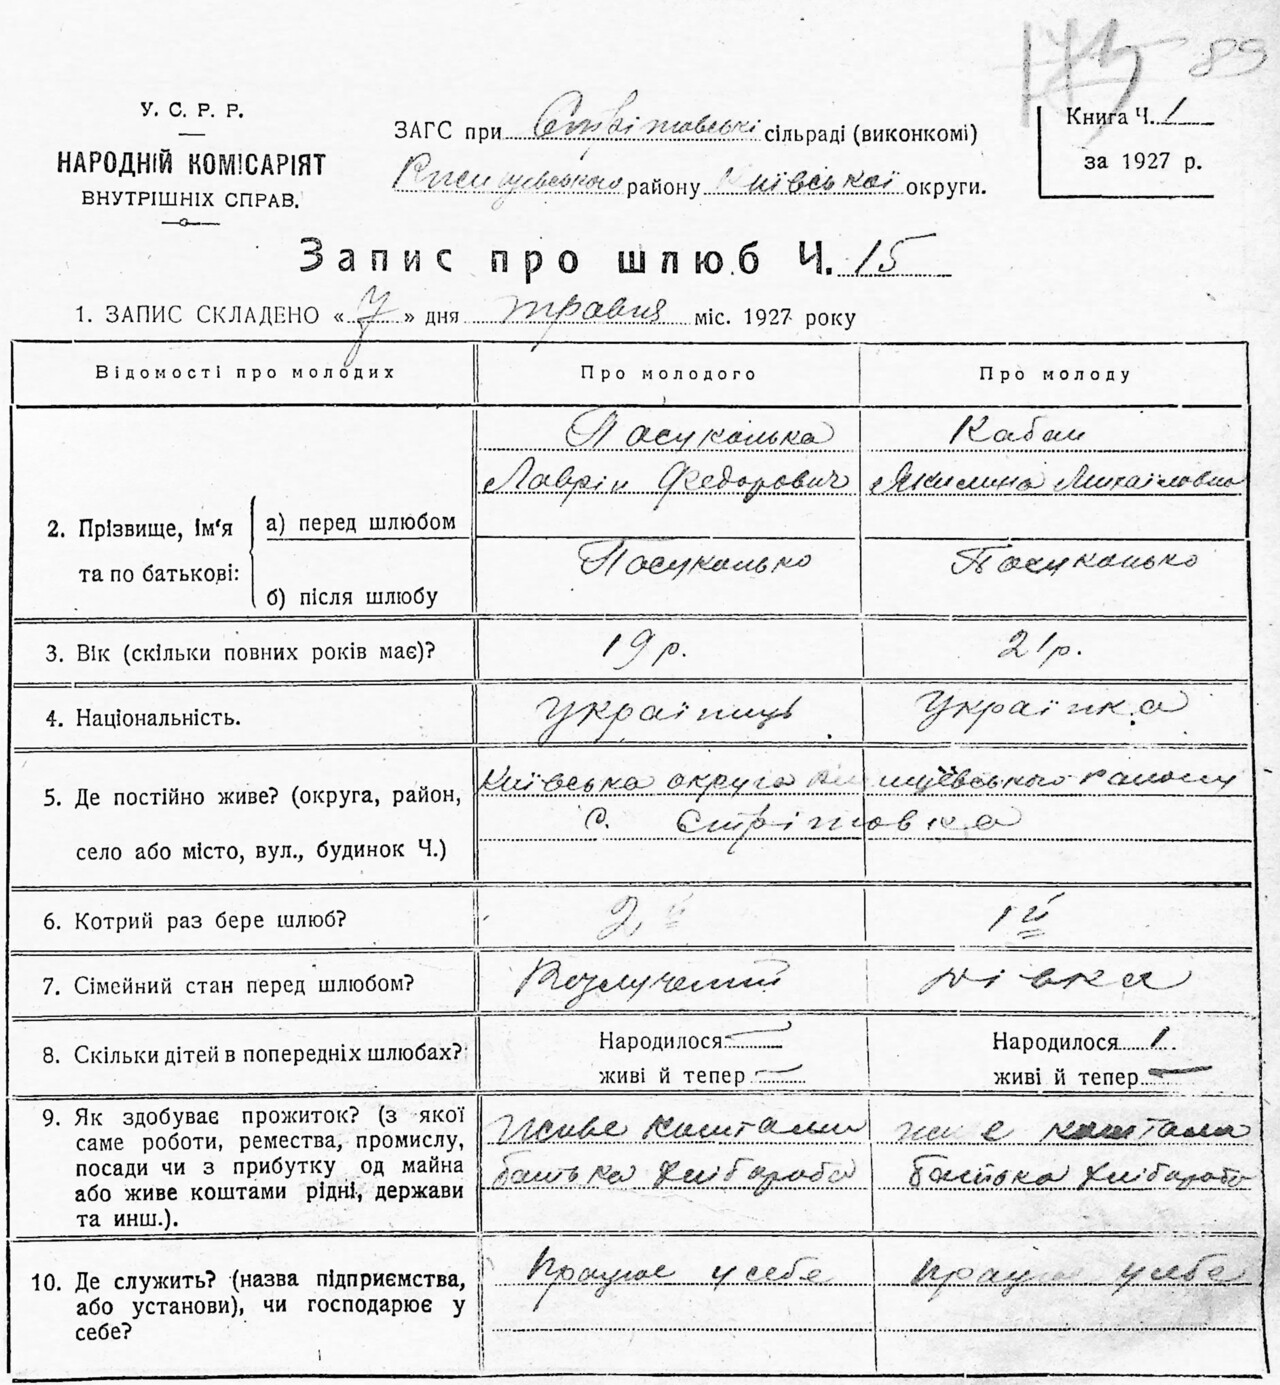 175 89
У. С. Р. Р.
НАРОДНІЙ КОМІСАРІЯТ
ВНУТРІШНІХ СПРАВ.
ЗАГС при Стрітовські сільраді (виконкомі)
району Київської округи.
Книга Ч. 1
за 1927 р.
Запис про шлюб Ч. 15
1. ЗАПИС СКЛАДЕНО « 7 » дня травня міс. 1927 року
Відомості про молодих Про молодого Про молоду
2. Прізвище, ім'я та по батькові:
а) перед шлюбом
Пасуканька Кабан
Лаврін Федорович Якилина Михаіловна
б) після шлюбу
Пасуканько Пасуканько
3. Вік (скільки повних років має)? 19 р. 21 р.
4. Національність. Українць Українка
5. Де постійно живе? (округа, район,
село або місто, вул., будинок Ч.)
Київська округа району
с. Стрітовка
6. Котрий раз бере шлюб? 2й 1й
7. Сімейний стан перед шлюбом? Розлучений дівка
8. Скільки дітей в попередніх шлюбах? Народилося — Народилося 1
живі й тепер — живі й тепер —
9. Як здобуває прожиток? (з якої
саме роботи, ремества, промислу,
посади чи з прибутку од майна
або живе коштами рідні, держави
та инш.).
Живе коштами живе коштами
батька хлібороба батька хлібороба
10. Де служить? (назва підприємства,
або установи), чи господарює у
себе?
Працює у себе Працює у себе